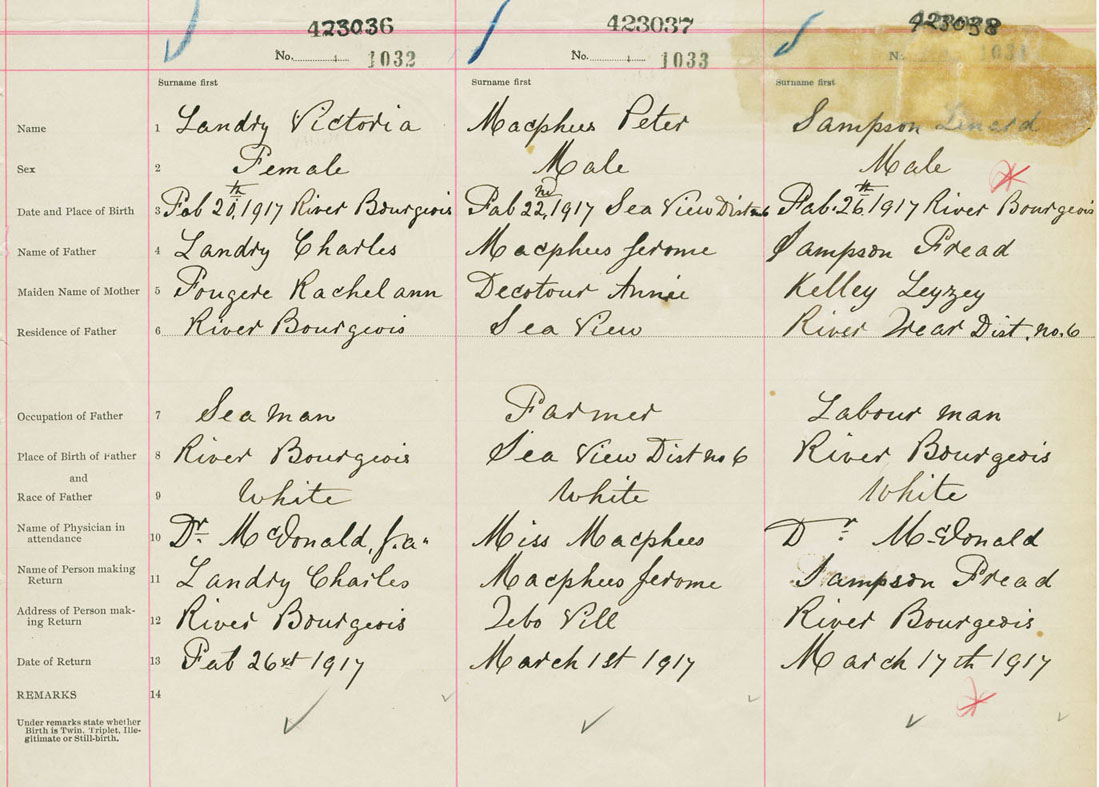 423036 423037 423038
No. 1032 No. 1033 No.
Surname first Surname first Surname first
Name 1 Landry Victoria Macphus Peter Sampson Lenard
Sex 2 Female Male Male
Date and Place of Birth 3 Fab 20th, 1917 River Bourgeois Fab 22nd, 1917 Sea View Dist no 6 Fab. 26th, 1917 River Bourgeois
Name of Father 4 Landry Charles Macphus Jerome Sampson Fread
Maiden Name of Mother 5 Fougere Rachel ann Decotour Annie Kelley Leyzey
Residence of Father 6 River Bourgeois Sea View River Dist. no. 6
Occupation of Father 7 Sea man Farmer Labour man
Place of Birth of Father 8 River Bourgeois Sea View Dist no 6 River Bourgeois
and
Race of Father 9 White White White
Name of Physician in
attendance 10 Dr. McDonald, J. a. Miss Macphus Dr. McDonald
Name of Person making
Return 11 Landry Charles Macphus Jerome Sampson Fread
Address of Person mak-
ing Return 12 River Bourgeois Tebo Vill River Bourgeois
Date of Return 13 Fab 26st 1917 March 1st 1917 March 17th 1917
REMARKS 14
Under remarks state whether
Birth is Twin, Triplet, Ille-
gitimate or Still-birth.